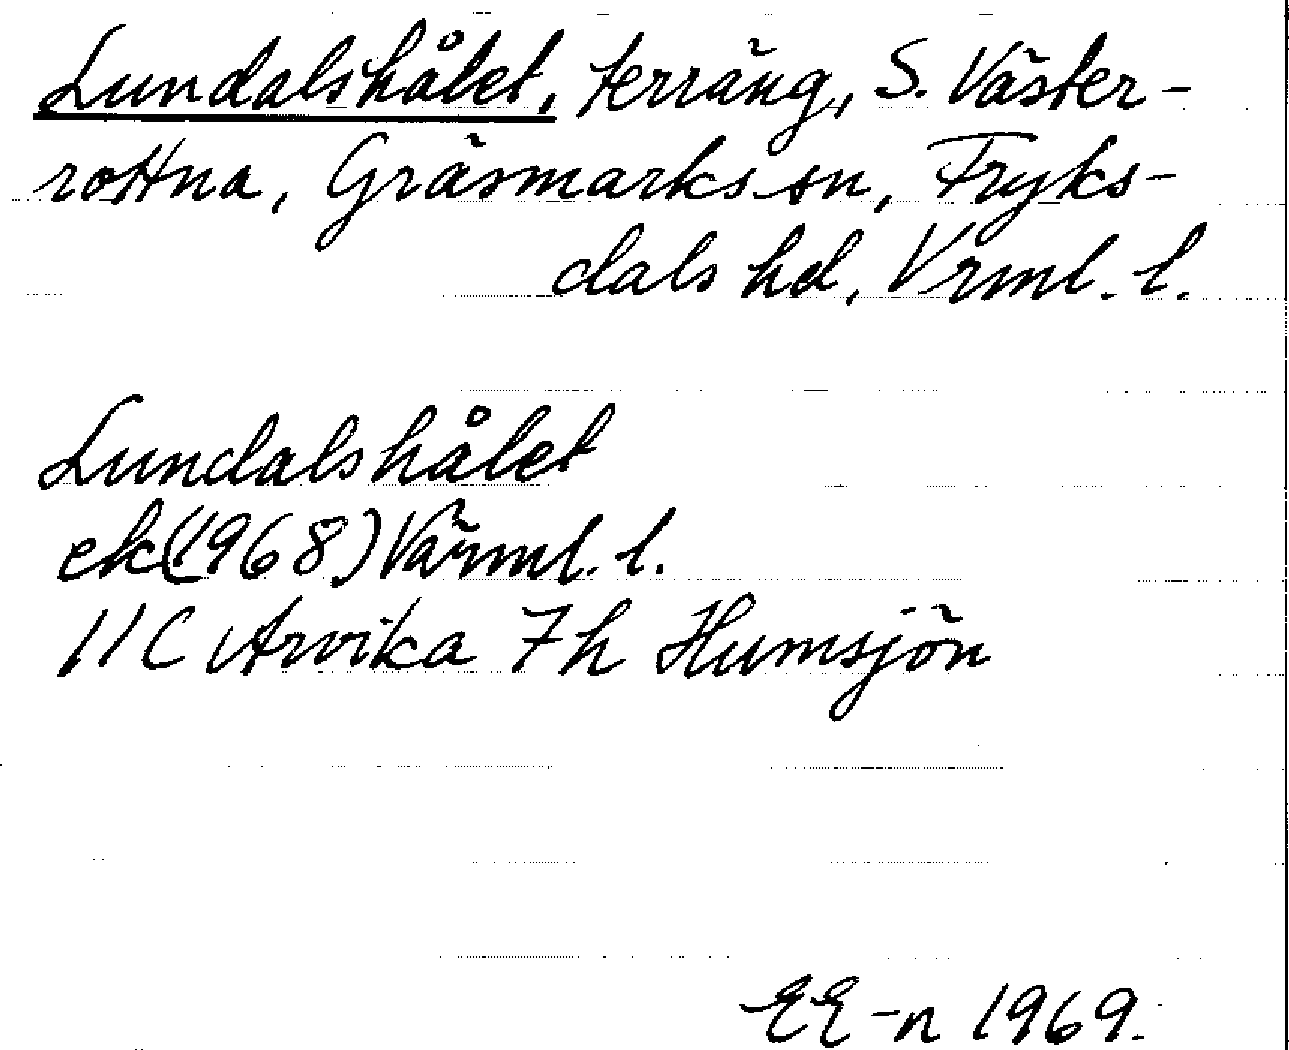 Lundalshålet, terräng, S. Väster-
rottna, Gräsmarks sn, Fryks-
dals hd, Vrml. l.
Lundalshålet
ek(1968) Värml. l.
11C Arvika 7h Humsjön
EE-n 1969.